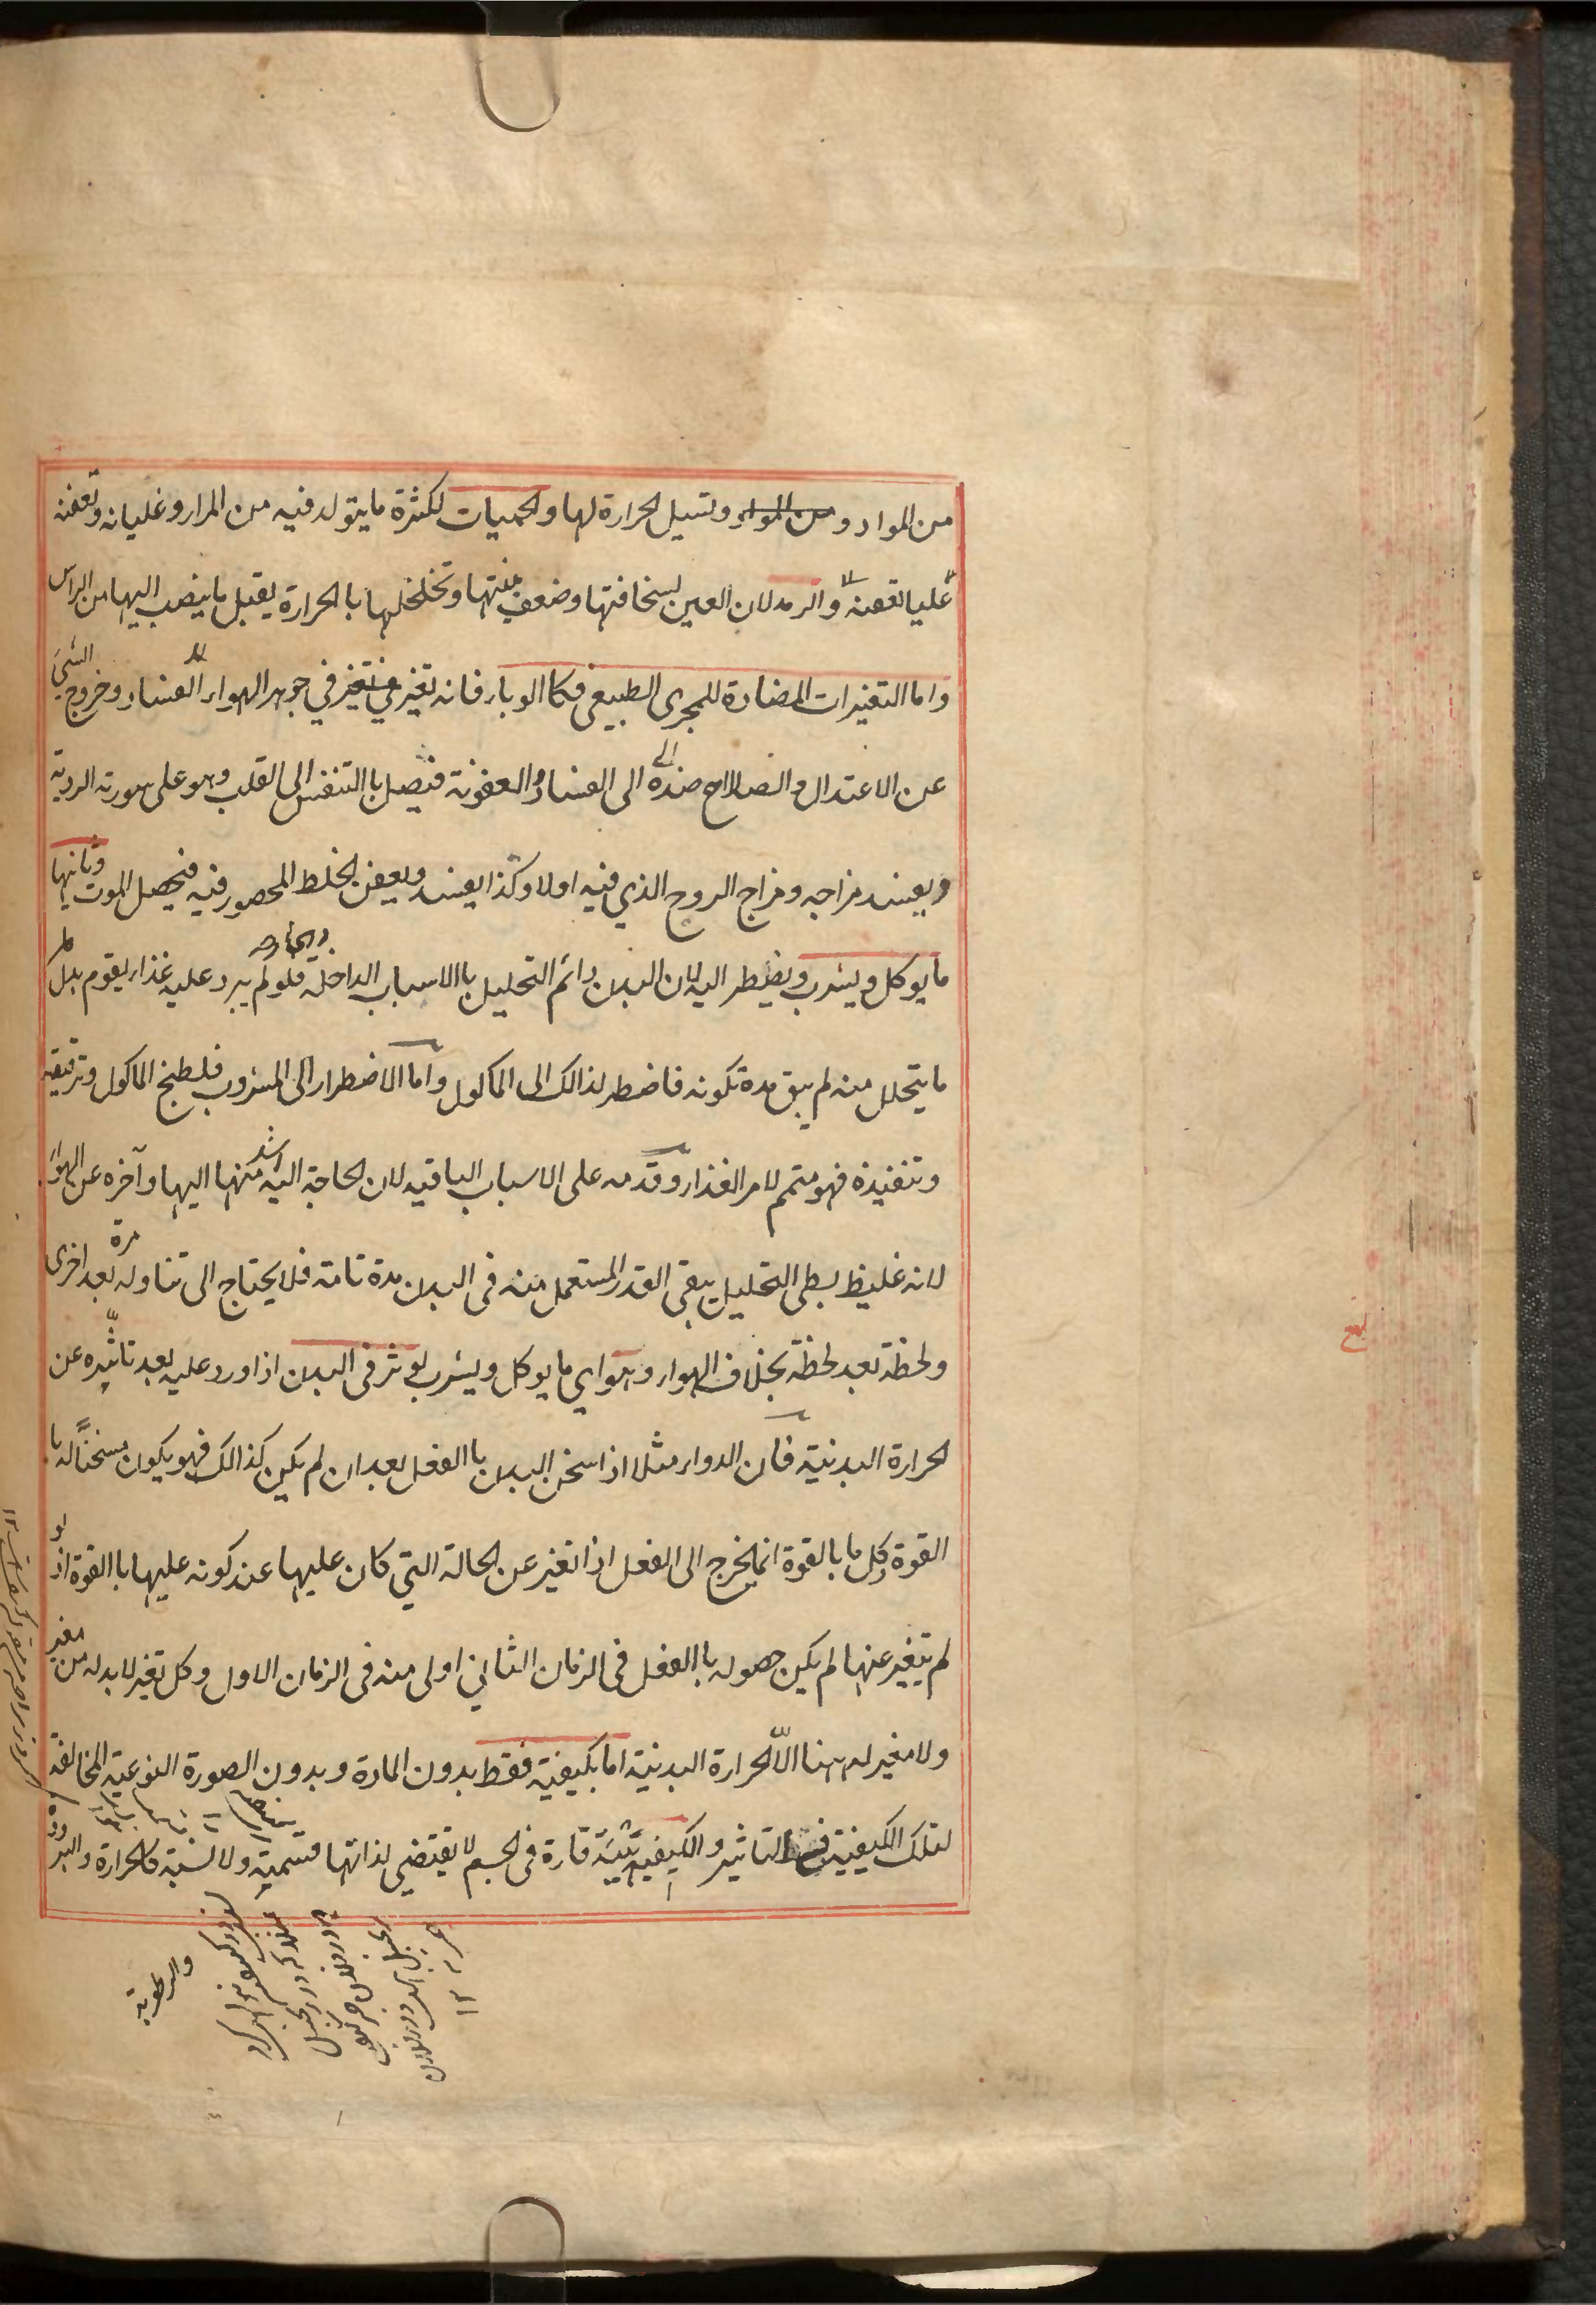 من المواد و من المواد وتسيل الحرارة لها والحميات لكثرة ما يتولد فيه من المرار وغليانه وتعفنه
غليا تعفنه والرمد لان العين لسخافتها وضعف منتها وتخلخلها بالحرارة يقبل ما ينصب اليها من الراس
واما التغيرات المضادة للمجرى الطبيعى فكا الوباء فانه تغير في جوهر الهواء الى الفساد وخروج الشيئ
عن الاعتدال والصلاح ضده الى الفساد والعفونة فيصل باالتنفس الى القلب وهو على صورته الردية
ويفسد مزاجه ومزاج الروح الذي فيه اولا وكذا يفسد ويعفن الخلط المحصور فيه فيحصل الموت وثانيها
ما يوكل ويشرب ويضطر اليه لان البدن دائم التحليل باالاسباب الداخلة والخارجة فلو لم يرد عليه غذاء يقوم بدل
ما يتحلل منه لم يبق مدة تكونه فاضطر لذالك الى الماكول واما الاضطرار الى المشروب فلطبخ الماكول وترقيقه
وتنفيذه فهو متمم لامر الغذاء وقدمه على الاسباب الباقيه لان الحاجة اليه اشد منها اليها وآخره عن الهواء
لانه غليظ بطى التحليل يبقى القدر المستعمل منه فى البدن مدة تامة فلا يحتاج الى تناوله مرة بعد اخرى
ولحظة بعد لحظة بخلاف الهواء وهو اي ما يوكل ويشرب يوثر فى البدن اذا ورد عليه بعد تاثيره عن
الحرارة البدنية فان الدواء مثلا اذا سخن البدن باالفعل بعد ان لم يكن كذالك فهو يكون مسخنًا له با
القوة وكل ما بالقوة انما يخرج الى الفعل اذا تغير عن الحالة التي كان عليها عند كونه عليها باالقوة اذ لو
لم يتغير عنها لم يكن حصوله باالفعل فى الزمان الثاني اولى منه فى الزمان الاول وكل تغير لابد له من مغير
ولا مغير له ههنا الّا الحرارة البدنية اما بكيفية فقط بدون المادة وبدون الصورة النوعية المخالفة
لتلك الكيفية فى التاثير والكيفية هيئة قارة فى الجسم لا يقتضى لذاتها قسمية ولا نسبة كالحرارة والبرودة
والرطوبة